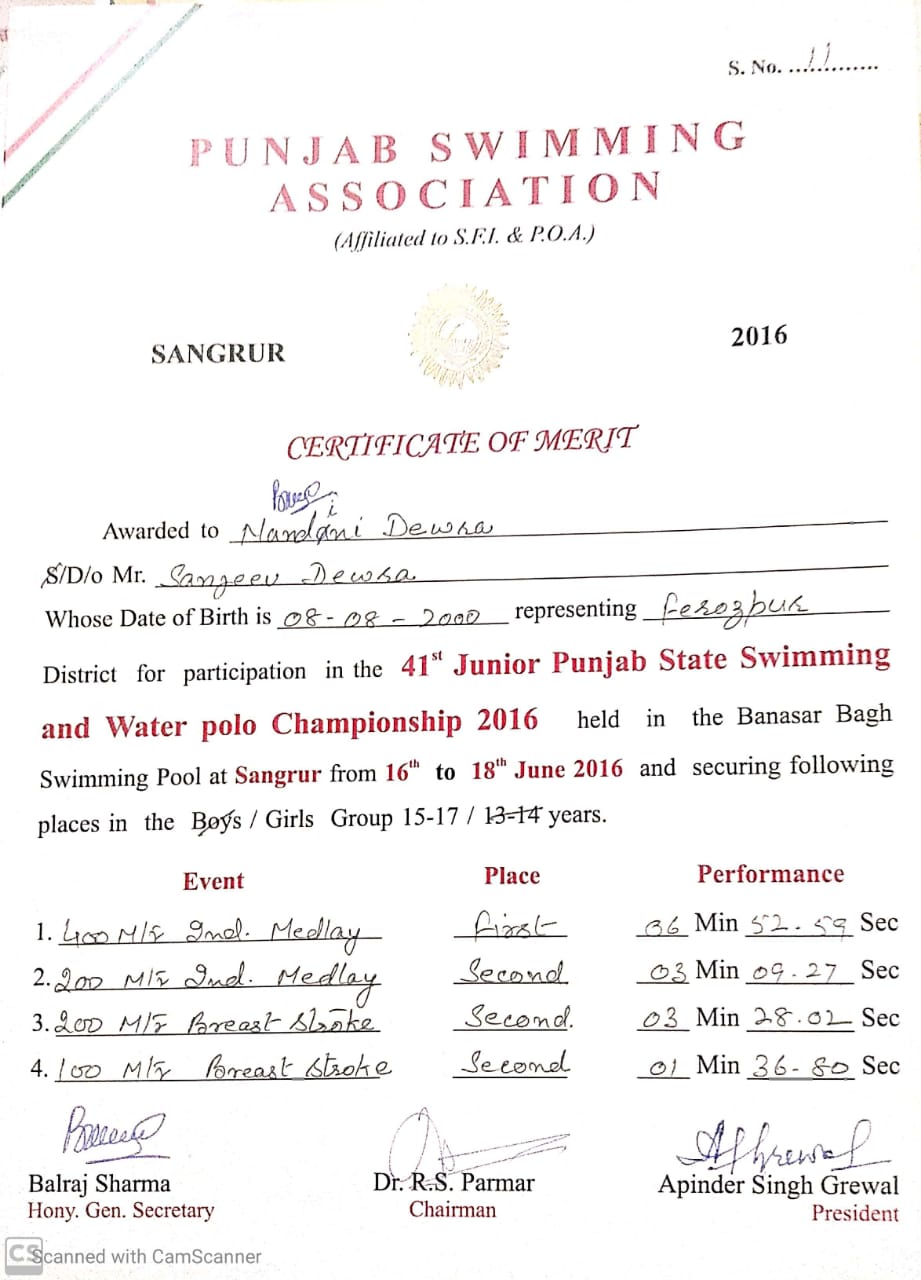 S. No. ...11.........
PUNJAB SWIMMING
ASSOCIATION
(Affiliated to S.F.I. & P.O.A.)
SANGRUR
2016
CERTIFICATE OF MERIT
i
Awarded to Nandani Dewra
S/D/o Mr. Sanjeev Dewra
Whose Date of Birth is 08-08-2000 representing ferozpur
District for participation in the 41st Junior Punjab State Swimming
and Water polo Championship 2016 held in the Banasar Bagh
Swimming Pool at Sangrur from 16th to 18th June 2016 and securing following
places in the Boys / Girls Group 15-17 / 13-14 years.
Event Place Performance
1. 400 Mtr Ind. Medlay first 06 Min 52.59 Sec
2. 200 Mtr Ind. Medlay Second 03 Min 09.27 Sec
3. 200 Mtr Breast Stroke Second. 03 Min 28.02 Sec
4. 100 Mtr Breast Stroke Second 01 Min 36-80 Sec
AGrewal
Balraj Sharma Dr. R.S. Parmar Apinder Singh Grewal
Hony. Gen. Secretary Chairman President
CS Scanned with CamScanner